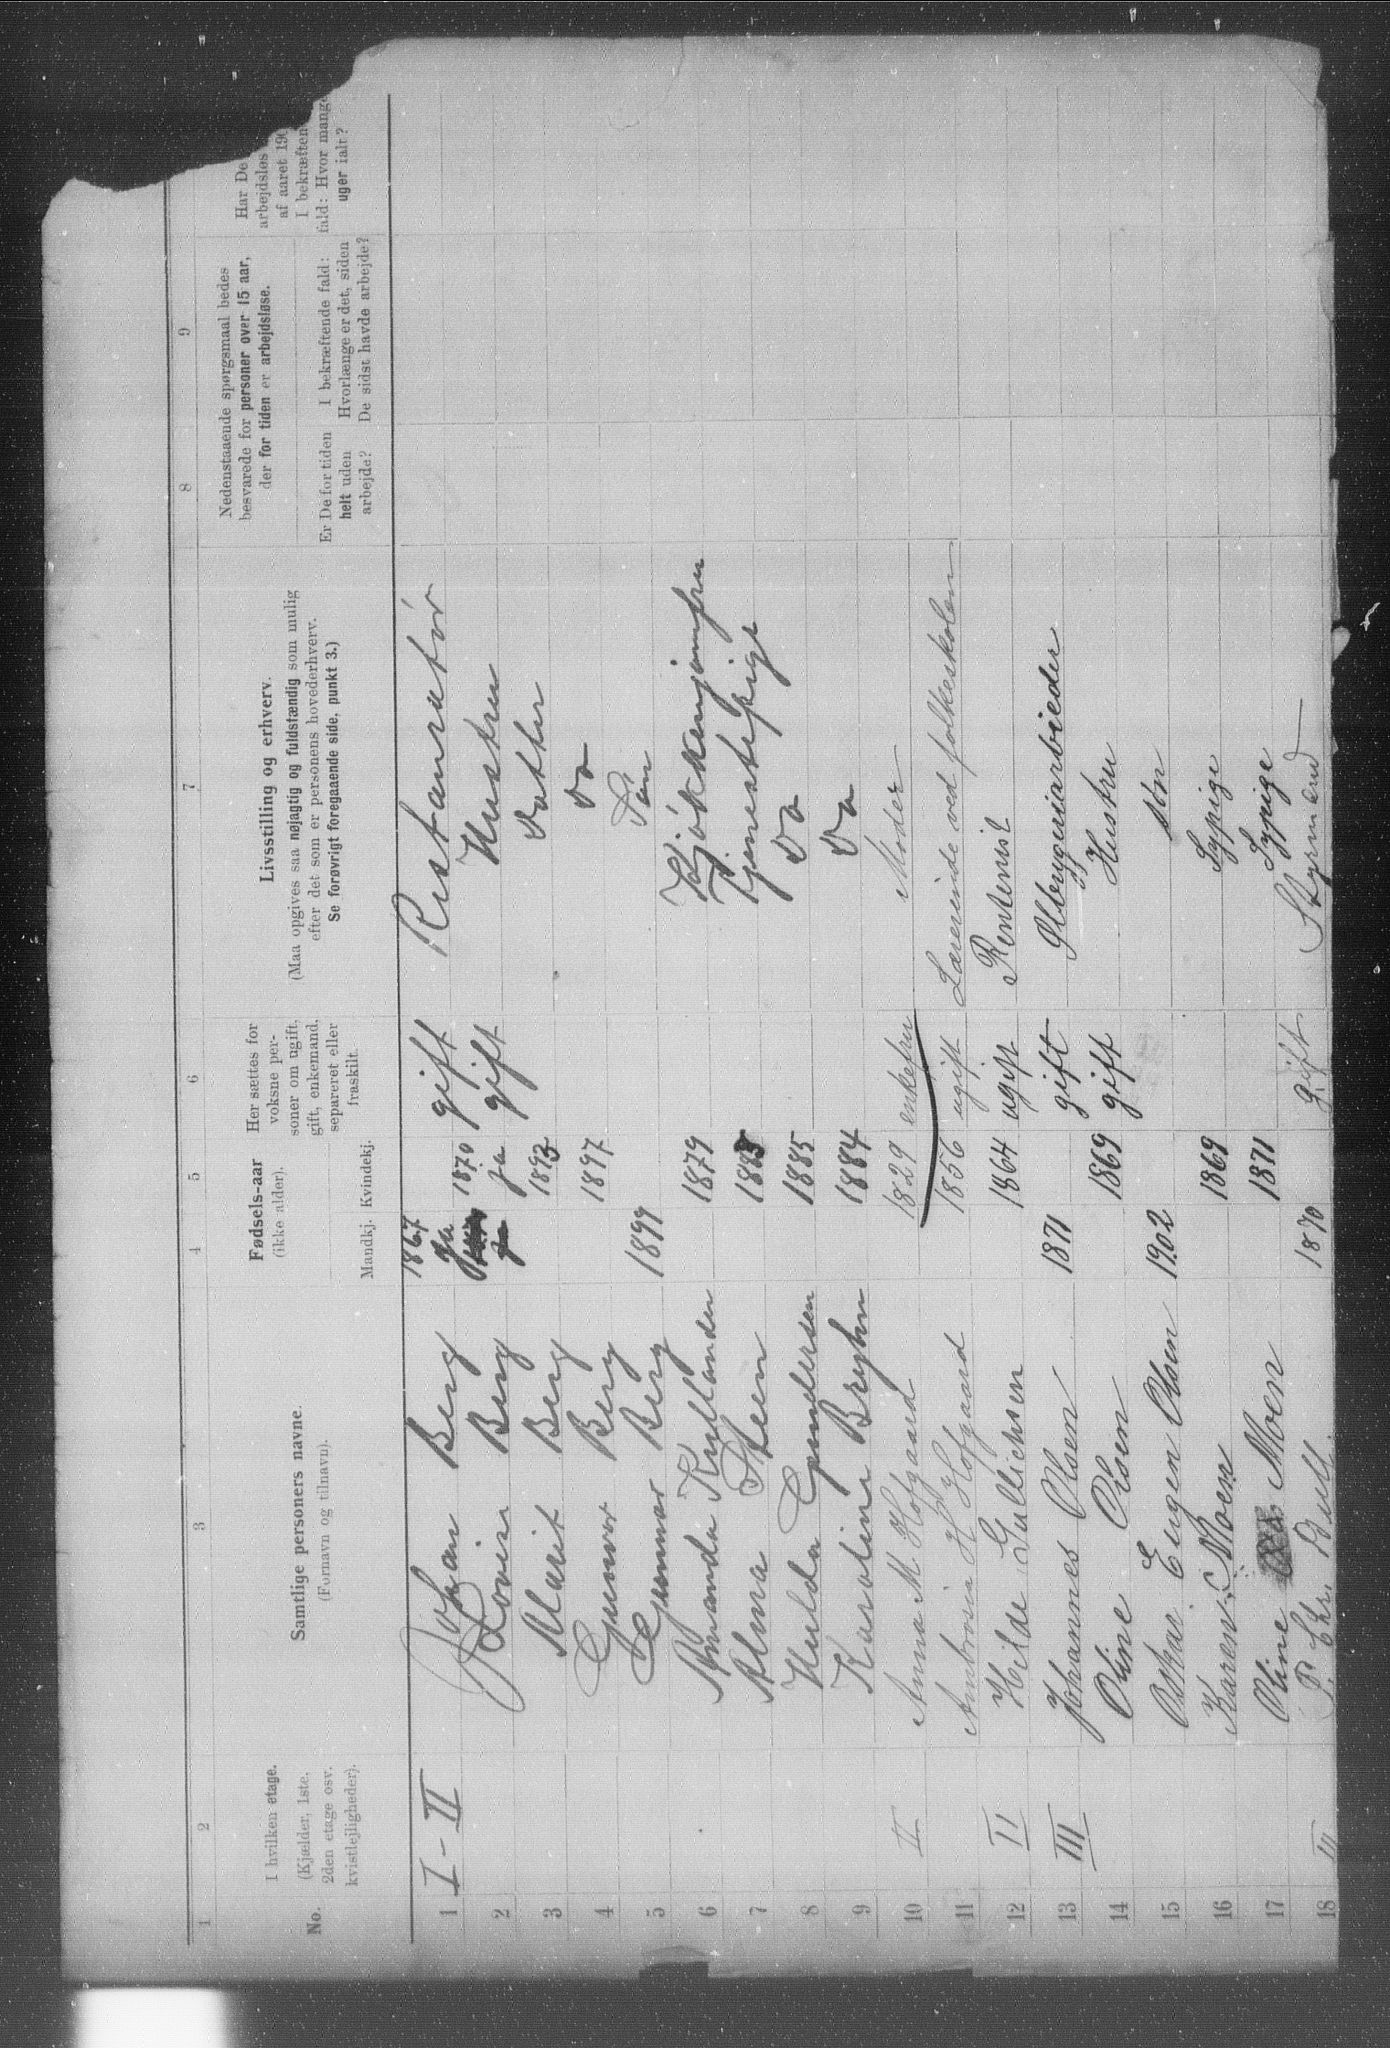 1 2 3 4 5 6 7 8 9
No.
I hvilken etage.
(Kjælder, 1ste,
2den etage osv.
kvistlejligheder).
Samtlige personers navne.
(Fornavn og tilnavn).
Fødsels-aar
(ikke alder).
Mandkj. Kvindekj.
Her sættes for
voksne per-
soner om ugift,
gift, enkemand,
separeret eller
fraskilt.
Livsstilling og erhverv.
(Maa opgives saa nøjagtig og fuldstændig som mulig
efter det som er personens hovederhverv.
Se forøvrigt foregaaende side, punkt 3.)
Nedenstaaende spørgsmaal bedes
besvarede for personer over 15 aar,
der for tiden er arbejdsløse.
Er De for tiden
helt uden
arbejde?
I bekræftende fald:
Hvorlænge er det, siden
De sidst havde arbejde?
Har De
arbejdsløs
af aaret 190
I bekræften
fald: Hvor mange
uger ialt?
1 I-II Johan Berg 1867 ja gift Restauratør
2 Lovise Berg 1870 ja gift Hustru
3 Marit Berg 1893 Datter
4 Gunvor Berg 1897 Do
5 Gunnar Berg 1899 Søn
6 Amanda Kullander 1879 Kjøkkenjomfru
7 Alma Steen 1885 Tjenestepige
8 Hulda Gundersen 1885 Do
9 Karoline Bryhn 1884 Do
10 II Anna M Hofgaard 1829 enkefru Moder
11 Ambrosia H Hofgaard 1856 ugift Lærerinde ved folkeskolen
12 II Hilde Gullichsen 1864 ugift Rentenist
13 III Johannes Olsen 1871 gift Ølbryggeriarbieder
14 Oline Olsen 1869 gift Hustru
15 Oskar Eugen Olsen 1902 søn
16 Karen Moen 1869 Sypige
17 Oline Moen 1871 Sypige
18 III P. Chr. Bull 1870 gift Styrmand